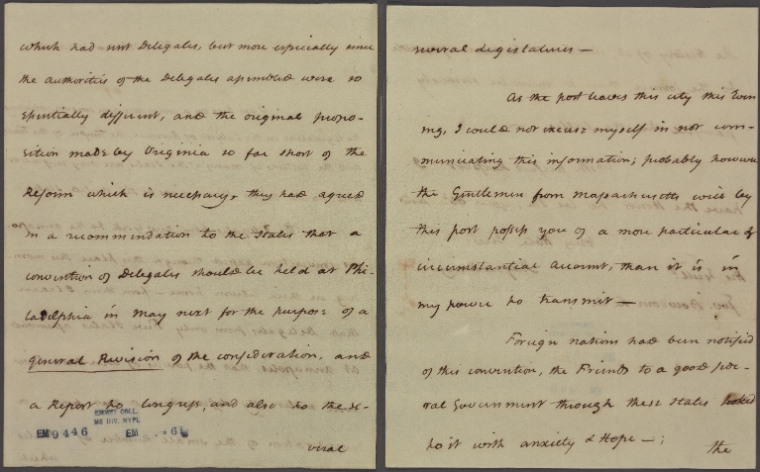 which had not Delegates, but more especially since
the authorities of the Delegates assembled were so
essentially different, and the original propo-
sition made by Virginia so far short of the
Reform which is necessary, they had agreed
in a recommendation to the States that a
convention of Delegates should be held at Phi-
ladelphia in may next for the purpose of a
general Revision of the confideration, and
a Report to Congress, and also to the se-
veral
EMMET COLL.
MS DIV. NYPL
EM 9446
EM 61
several Legislatures —
As the post leaves this city this Even
ing, I could not excuse myself in not com-
municating this information; probably however
the Gentlemen from Massachusetts will by
this post possess you of a more particular &
circumstantial account, than it is in
my power to transmit —
Foreign nations had been notified
of this convention, the Friends to a good fœde-
ral Government through these States looked
to it with anxiety & Hope —;
the